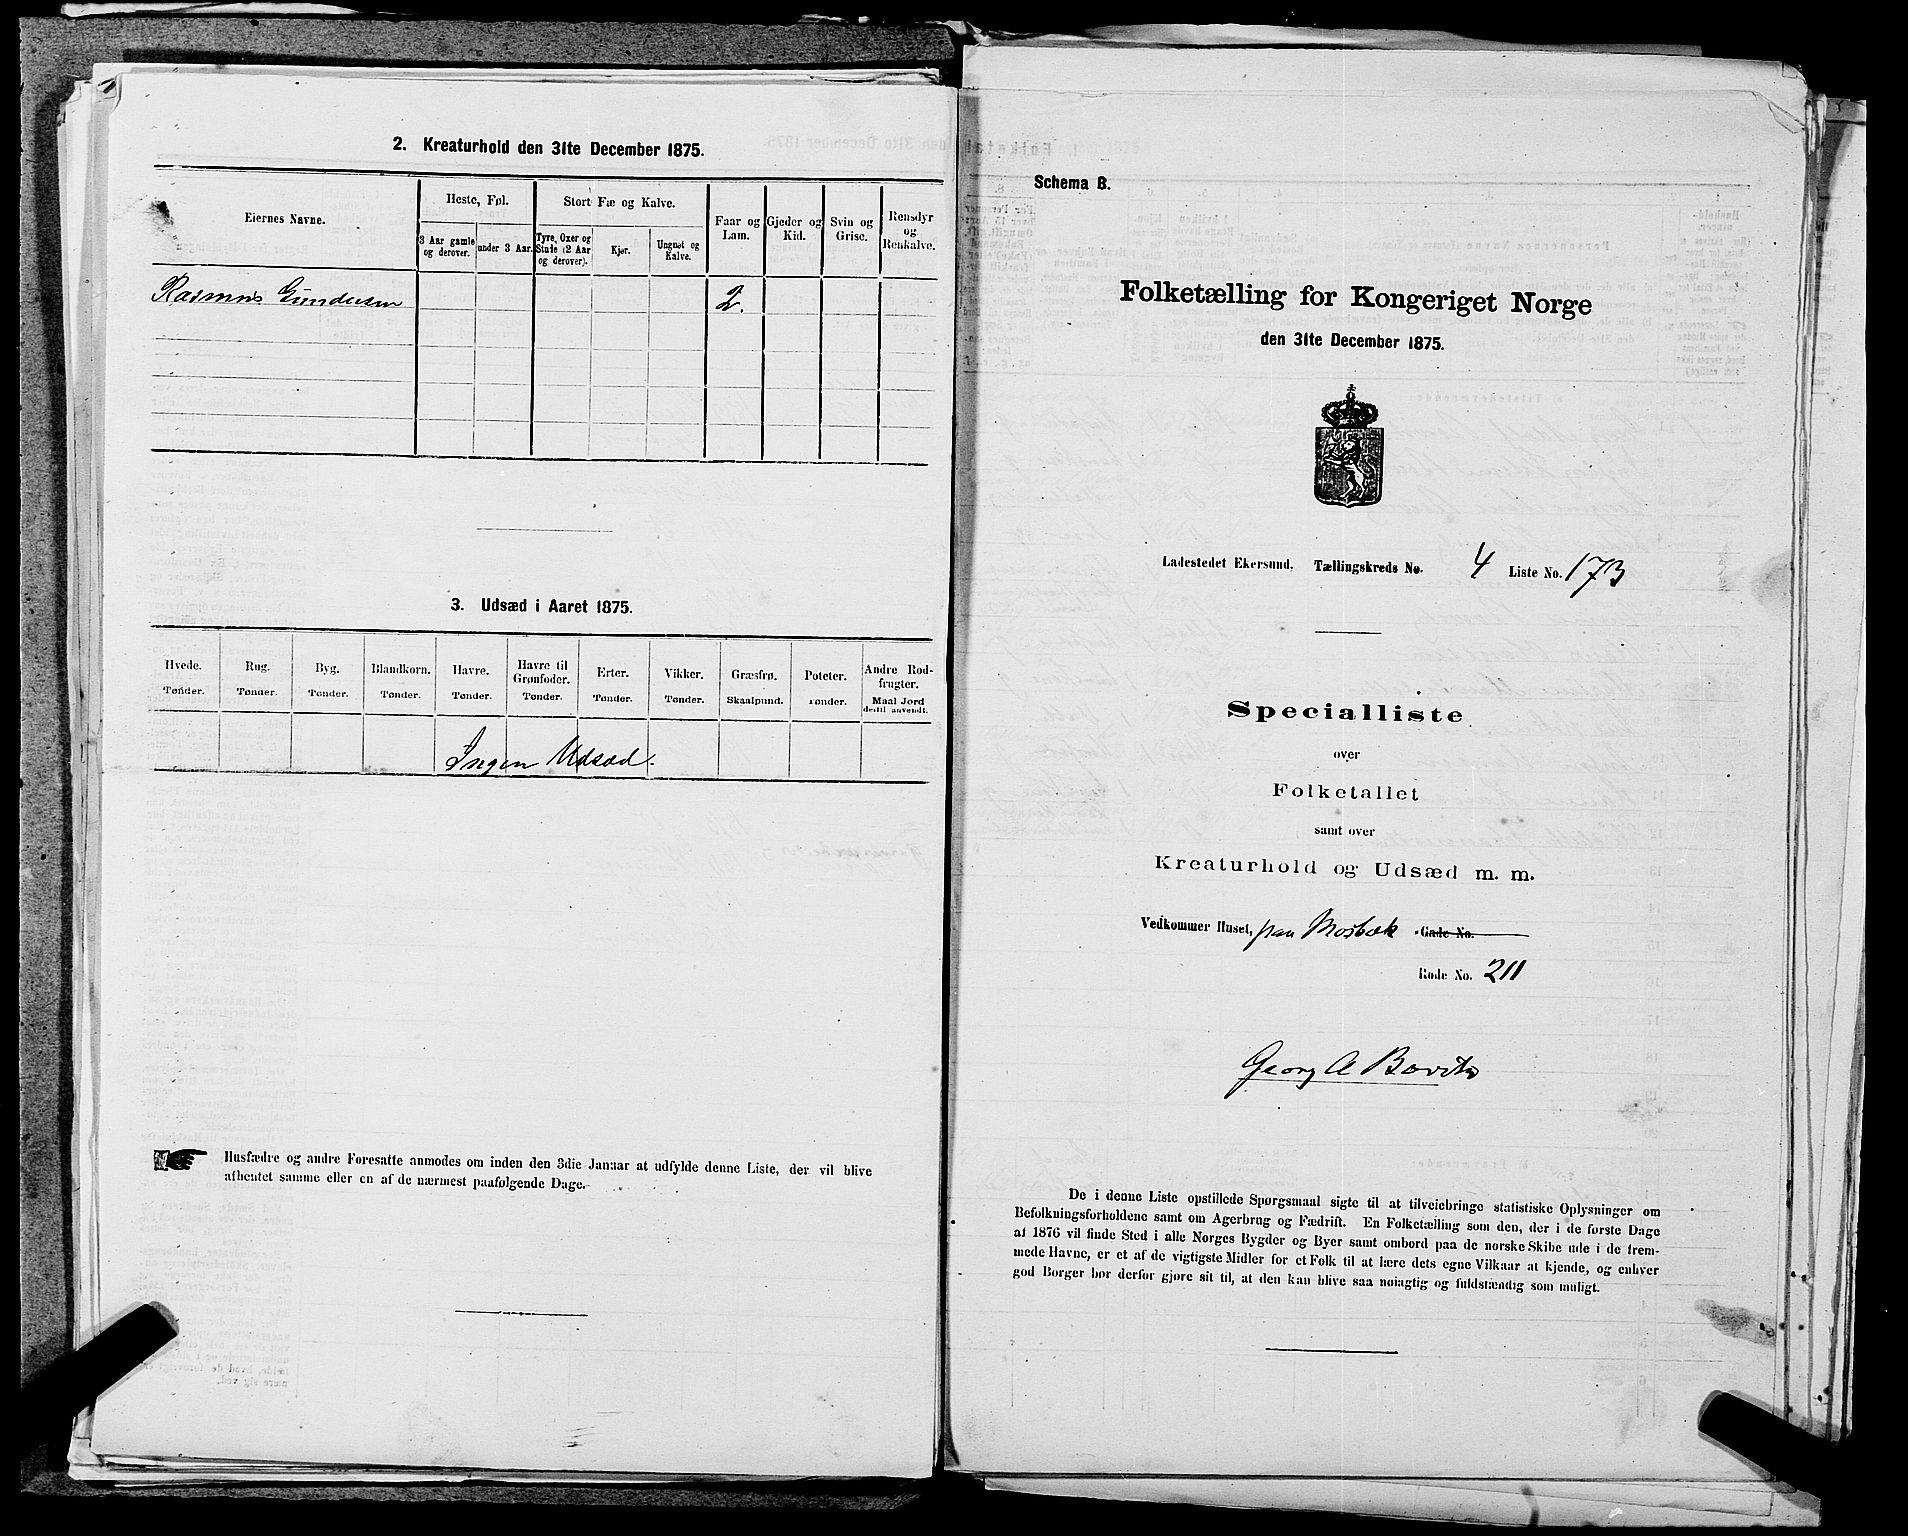 2. Kreaturhold den 31te December 1875.
Eiernes Navne.
Heste, Føl.
3 Aar gamle og derover.
under 3 Aar.
Stort Fæ og Kalve.
Tyre, Oxer og Stude (2 Aar og derover).
Kjør.
Ungnøt og Kalve.
Faar og Lam.
Gjeder og Kid.
Svin og Grise.
Rensdyr og Renkalve.
Rasmus Gundersen 2.
3. Udsæd i Aaret 1875.
Hvede. Rug. Byg. Blandkorn. Havre. Havre til Grønfoder. Erter. Vikker. Græsfrø. Poteter. Andre Rodfrugter.
Tønder. Tønder. Tønder. Tønder. Tønder. Tønder. Tønder. Tønder. Skaalpund. Tønder. Maal Jord dertil anvendt.
Ingen Udsæd.
Husfædre og andre Foresatte anmodes om inden den 3die Januar at udfylde denne Liste, der vil blive
afhentet samme eller en af de nærmest paafølgende Dage.
Schema B.
Folketælling for Kongeriget Norge
den 31te December 1875.
Ladestedet Ekersund. Tællingskreds No. 4 Liste No. 173
Specialliste
over
Folketallet
samt over
Kreaturhold og Udsæd m. m.
Vedkommer Huset, paa Mosbæk Gade No.
Rode No. 211
Georg A
De i denne Liste opstillede Spørgsmaal sigte til at tilveiebringe statistiske Oplysninger om
Befolkningsforholdene samt om Agerbrug og Fædrift. En Folketælling som den, der i de første Dage
af 1876 vil finde Sted i alle Norges Bygder og Byer samt ombord paa de norske Skibe ude i de frem-
mede Havne, er et af de vigtigste Midler for et Folk til at lære dets egne Vilkaar at kjende, og enhver
god Borger bør derfor gjøre sit til, at den kan blive saa nøiagtig og fuldstændig som muligt.